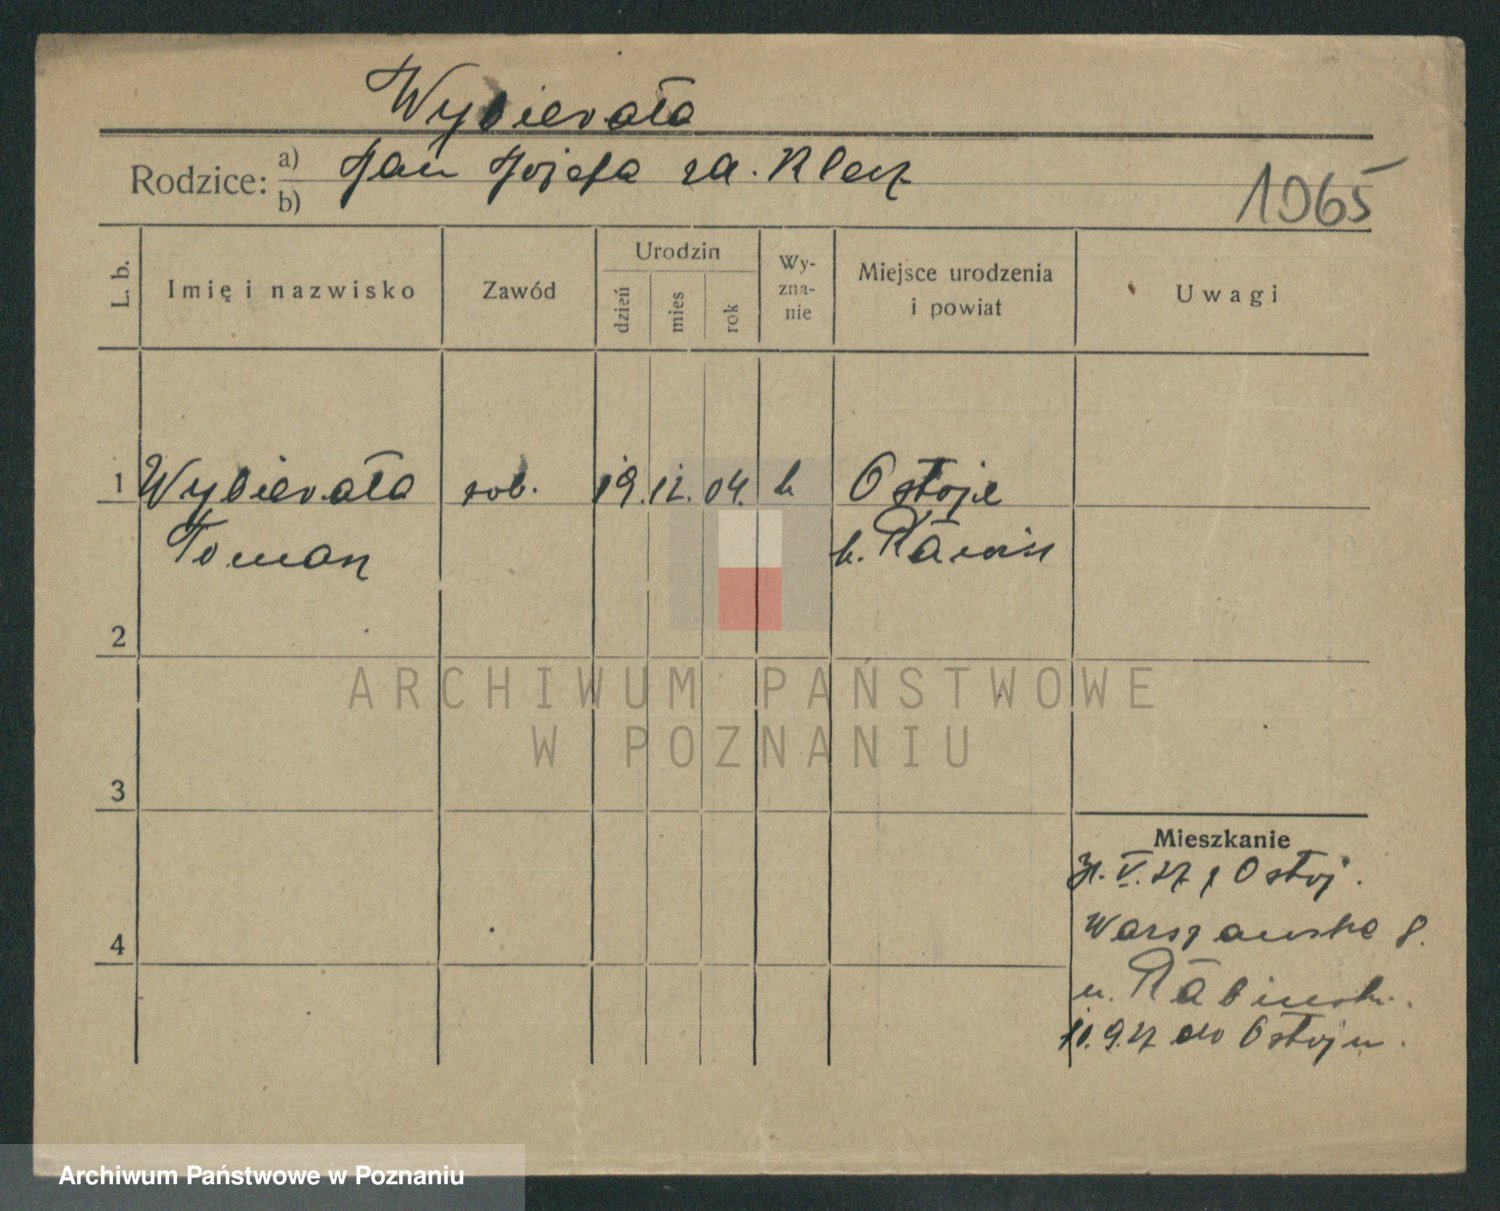 Wybierała
Rodzice: a) Jan Józefa za. Klecz
b)
1965
L. b.
Imię i nazwisko
Zawód
Urodzin
dzień
mies
rok
Wy-
zna-
nie
Miejsce urodzenia
i powiat
Uwagi
1 Wybierała rob. 19. 12. 04. k Ostoje
Tomasz k.
2
ARCHIWUM PAŃSTWOWE
W POZNANIU
3
Mieszkanie
V. 27 z Ostoj.
4 Warszawska 8.
u.
10. 9. 27 do Ostoju.
Archiwum Państwowe w Poznaniu